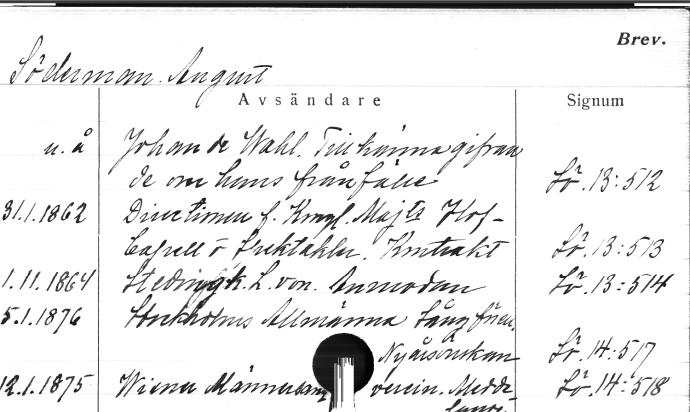 Brev.
Söderman. August
Avsändare Signum
u. å Johan de Wahl. Tillkännagifvan
de om hans frånfälle Sö. 13:512
31.1.1862 Directionen f. Kongl. Majts Hof-
Capell o Spektakler. Kontrakt Sö. 13:513
1.11.1864 Stedingk. L. von. Anmodan Sö. 13:514
5.1.1876 Stockholms Allmänna Sångfören.
Nyårsönskan Sö. 14:517
12.1.1875 Wiener Männergesang verein. Medde-
Sö. 14:518